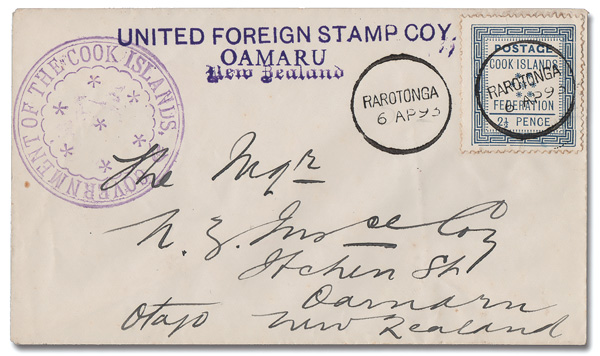 UNITED FOREIGN STAMP COY.
OAMARU
New Zealand
GOVERNMENT OF THE COOK ISLANDS.
RAROTONGA
6 AP 93
POSTAGE
COOK ISLANDS
FEDERATION
2½ PENCE
RAROTONGA
6 AP 93
The Mgr
N. Z. Insce Coy
Itchen St
Oamaru
Otago New Zealand